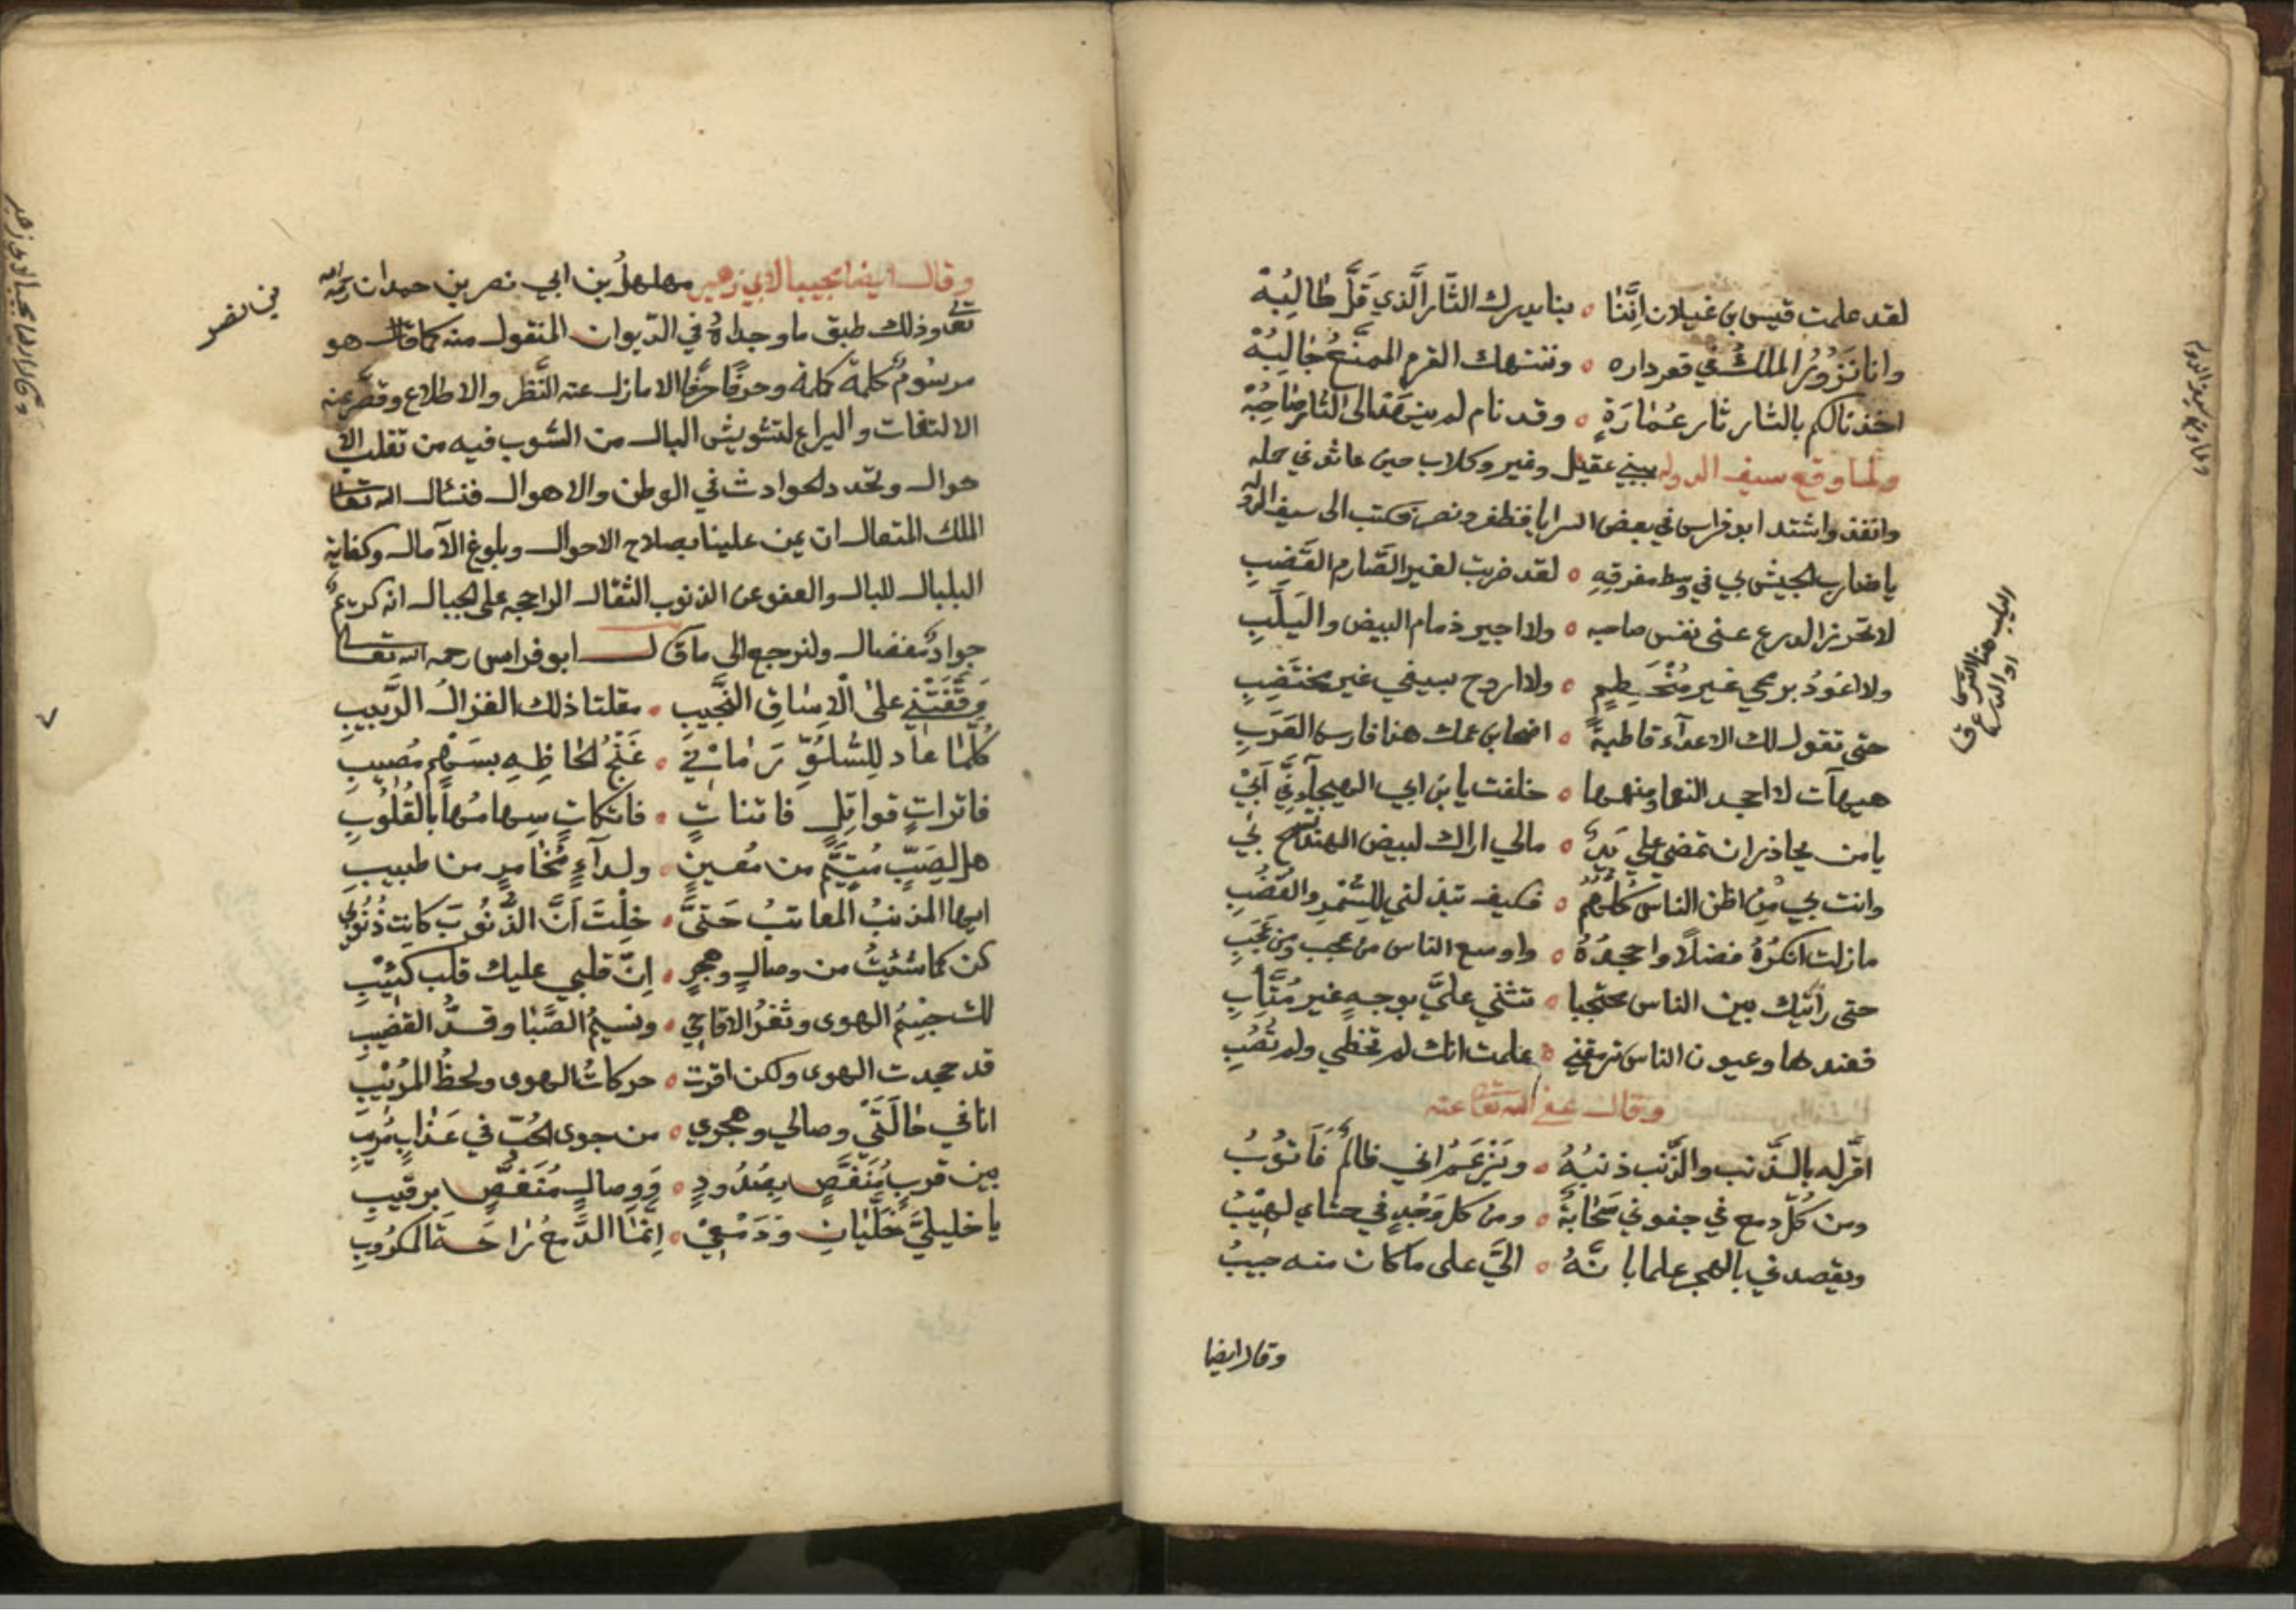 لقد علمت قيس بن غيلان اِنَّنٰا ٥ بنا يدرك الثّار الَّذي قَلَّ طٰالِبُهْ
وانا نَزُوْرُ الملكَ في قعر داره ٥ وننتهك القرم الممنَّع جٰالِبُهْ
اخذنا لكم بالثار ثار عُمٰارَةٍ ٥ وقد نام لم ينهض الى الثار صٰاحِبُهْ
ولما وقع سيف الدوله ببني عقيل وغير وكلاب حين عاثو في عمله
وانفذ واشتد ابو فراس في بعض السرايا فظفر ونصر فكتب الى سيف الدوله
يا ضارب الجيش بي في وسط مفرقِهِ ٥ لقد ضربت لغير الصّارم القَضِبِ
لا تحرز الدرع عنى نفس صاحبه ٥ ولا اجير ذمام البيض واليَلَبِ
ولا اعُوْدُ برمحي غير مُنْحَطِمٍ ٥ ولا اروح بسيفي غير مختضِبِ
حتى تقول لك الاعدآء قاطبةً ٥ اضحا بن عمك هذا فارس العَرَبِ
هيهآت لا اجحد النعما ومنهمها ٥ خلفت يا بن ابي الهيجآء فيَّ اَبيْ
يا من يحاذر ان تمضي علي يَدٌ ٥ مالي اراك لبيض الهند تسمح بي
وانت بي مِنْ اظن الناس كُلِّهُمُ ٥ فكيف تبذلني للسُّمْرِ والقُضُبِ
مازلت انكرُهُ فضلًا واجحدُهُ ٥ واوسع الناس من عجب ومن عَجَبِ
حتى رأيتك بين الناس محتجبا ٥ تثني عليَّ بوجهٍ غير مُتَّابِ
فعندها وعيون الناس ترمقني ٥ علمت انك لم تخطي ولم تُصِبِ
وقال عفى الله تعا عنه
اقرّ له بالذّنب والذّنب ذنبُهُ ٥ ويَزْعَمُ اني ظالمٌ فَاَتوُبُ
ومن كلّ دمع في جفوني سَحٰابةٌ ٥ ومن كل وَجْدٍ في حشاي لهيبُ
ويقصدني بالهجر علما بانَّهُ ٥ اليَّ على ما كان منه حبيبُ
وقال ايضا
اليلب هنا الترس
او الدرع ق
وقال ايضا مجيبا لابي زهير مهلهلُ بن ابي نصر بن حمدان رحمه الله
تعا وذلك طبق ما وجداهُ في الدّيوان المنقول منه كما قال هو
مرسُومٌ كلمة كلمة وحرفًا حرفًا الا مازل عنه النّظر والاطلاع وقصّر عنه
الالتفات واليراع لتشويش البال من الشوب فيه من تقلب الا
حوال وتجّدد الحوادث في الوطن والاهوال فنسال الله تعالى
الملك المتعال ان يمن علينا بصلاح الاحوال وبلوغ الآمال وكفاية
البلبال للبال والعفو عن الذنوب الثقال الراجحه على الجبال انه كريمٌ
جوادٌ مفضال ولنرجع الى ما قال ابو فراس رحمه الله تعالى
وَقَّفَتْني على الْاِسٰاقِ النَّجيبِ ٥ مقلتا ذلك الغزالُ الرَّبيبِ
كُلَّمٰا عٰاد لِلسُّلوِّ رَمٰانيْ ٥ غَنْجُ الحٰاظِهِ بسَهْمٍ مُصيبِ
فاتراتٍ قواتِلٍ فاتناتٍ ٥ فاتكاتٍ سِهامُهٰا بالقُلوُبِ
هل لِصَبٍّ مُتيَّمٍ من مُعينٍ ٥ ولدآءٍ مُخٰامرٍ من طبيبِ
ايها المذنبُ المعاتبُ حَتىَّ ٥ خِلْتَ اَنَّ الذُّنُوبَ كانت ذُنُوبي
كن كما شئتُ من وصالٍ وهجرٍ ٥ اِنّ قلبي عليك قلب كئيْبِ
لك جسْمُ الهوى وثغرُ الاقاحي ٥ ونسيمُ الصَّبٰا وقدُّ القضيبِ
قد جحدت الهوى ولكن اقرت ٥ حركاتُ الهوى ولحظُ المُريْبِ
انا في حٰالَتَيْ وصالي وهجري ٥ من جوى الحُبّ في عَذابٍ مُريبِ
بين قربٍ مُنَغَّصٍ بِصُدُودٍ ٥ وَوِصالٍ مُنَغَّصٍ برقيبِ
يا خليليَّ خَلِّيٰانِ وَدَمْعيْ ٥ اِنَّمٰا الدَّمعُ رٰاحَة المكرُوبِ